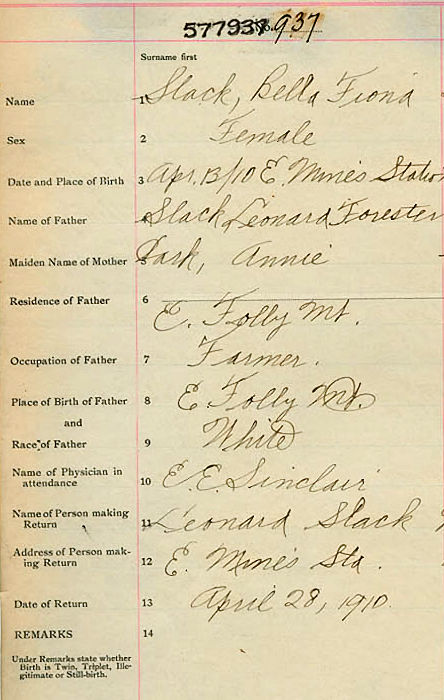 577937 937
Surname first
Name 1 Slack, Bella Fiona
Sex 2 Female
Date and Place of Birth 3 Apr. 13/10 E. Mines Station
Name of Father 4 Slack Leonard Forester
Maiden Name of Mother 5 Park, Annie
Residence of Father 6 E. Folly Mt.
Occupation of Father 7 Farmer.
Place of Birth of Father 8 E. Folly Mt.
and
Race of Father 9 White
Name of Physician in
attendance 10 E. E. Sinclair
Name of Person making
Return 11 Leonard Slack
Address of Person mak-
ing Return 12 E. Mines Sta.
Date of Return 13 April 28, 1910.
REMARKS 14
Under Remarks state whether
Birth is Twin, Triplet, Ille-
gitimate or Still-birth.